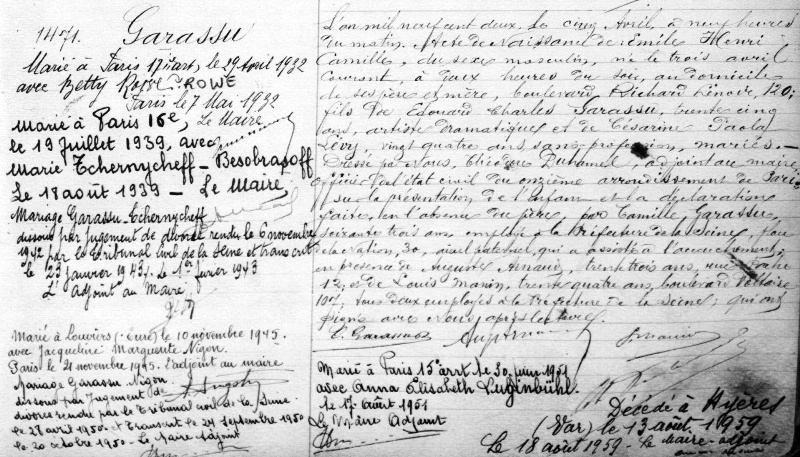 1471. Garassu
Marié à Paris 17e art, le 19 Avril 1932
avec Betty Rowe. ROWE
Paris le 7 Mai 1932
Le Maire
Marié à Paris 16e,
le 19 Juillet 1939, avec
Marie Tchernycheff-Besobrasoff
Le 18 août 1939 - Le Maire,
Mariage Garassu-Tchernycheff
dissous par jugement de divorce rendu le 6 novembre
1942 par le Tribunal civil de la Seine et transcrit
le 23 janvier 1943. le 1er février 1943
L'Adjoint au Maire
Marié à Louviers (Eure) le 10 novembre 1945.
avec Jacqueline Marguerite Nigon.
Paris le 21 novembre 1945. L'adjoint au maire
Mariage Garassu-Nigon
dissous par Jugement de
divorce rendu par le Tribunal civil de la Seine
le 28 avril 1950 et transcrit le 29 septembre 1950
le 20 octobre 1950 - Le Maire adjoint
L'an mil neuf cent deux. Le cinq Avril, à neuf heures
du matin. Acte de Naissance de Emile Henri
Camille, du sexe masculin, né le trois avril
courant, à deux heures du soir, au domicile
de ses père et mère, boulevard Richard Lenoir, 120;
fils de Edouard Charles Garassu, trente cinq
ans, artiste dramatique, et de Césarine Paola
Lévy, vingt quatre ans sans profession, mariés. -
Dressé par Nous, Duhamel, adjoint au maire,
officier de l'état civil du onzième arrondissement de Paris
sur la présentation de l'Enfant et la déclaration
faite, en l'absence du père, par Camille Garassu,
soixante trois ans, employé à la Préfecture de la Seine,
de la Nation, 30, aïeul paternel qui a assisté à l'accouchement;
en présence de Auguste Arnaud, trente trois ans, rue
12, et de Louis Manin, trente quatre ans, boulevard Voltaire
107, tous deux employés à la Préfecture de la Seine; qui ont
signé avec Nous, après lecture.
C. Garassu
Marié à Paris 15e arrt le 30 juin 1951
avec Anna Elisabeth Luginbühl.
le 17 Août 1951
Le Maire Adjoint
Décédé à Hyères
(Var) le 13 août 1959
Le 18 août 1959 - Le Maire-adjoint